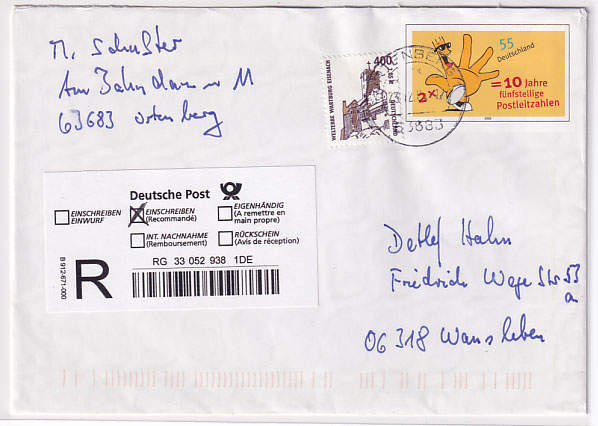 M. Schuster
Am Bahndamm 11
63683 Ortenberg
55
Deutschland
2x
= 10 Jahre
fünfstellige
Postleitzahlen
400
WELTERBE WARTBURG EISENACH
DEUTSCHLAND
63683
Deutsche Post
EINSCHREIBEN EINWURF
EINSCHREIBEN (Recommandé)
EIGENHÄNDIG (A remettre en main propre)
INT. NACHNAHME (Remboursement)
RÜCKSCHEIN (Avis de réception)
R
RG 33 052 938 1DE
B 912-671-000
Detlef Hahn
Friedrich Wege Str 53
a
06318 Wansleben